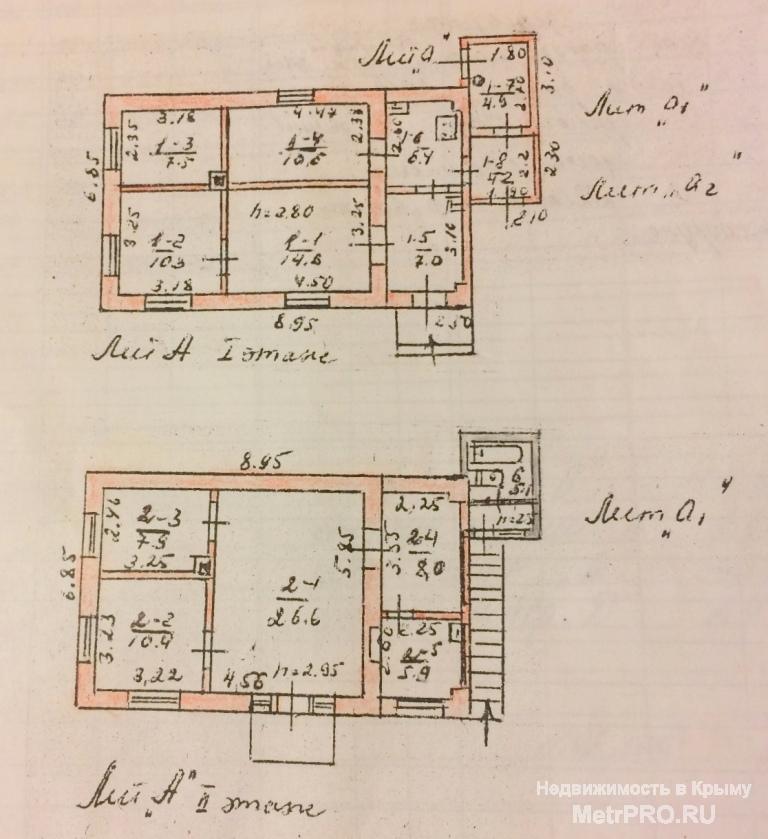 Лит "а"
1.80
1-7
4.9
3.10
Лит "а₁"
3.18
4.47
2.35
1-3
7.5
1-4
10.5
2.33
1-6
6.4
1-8
4.2
2.2
2.30
Лит "а₂"
6.85
2.10
h=2.80
3.25
3.25
1-2
10.3
1-1
14.6
1.5
7.0
3.16
3.18
4.50
8.95
2.50
Лит А I этаж
8.95
2.46
2-3
7.9
3.25
2.25
5.85
3.55
2-4
8.0
6
5.1
h=2.5
Лит "а₁"
6.85
2-1
26.6
3.23
2-2
10.4
2.25
2.60
2-5
5.9
3,22
4,56
h=2.95
Лит "А" II этаж
Недвижимость в Крыму
MetrPRO.RU